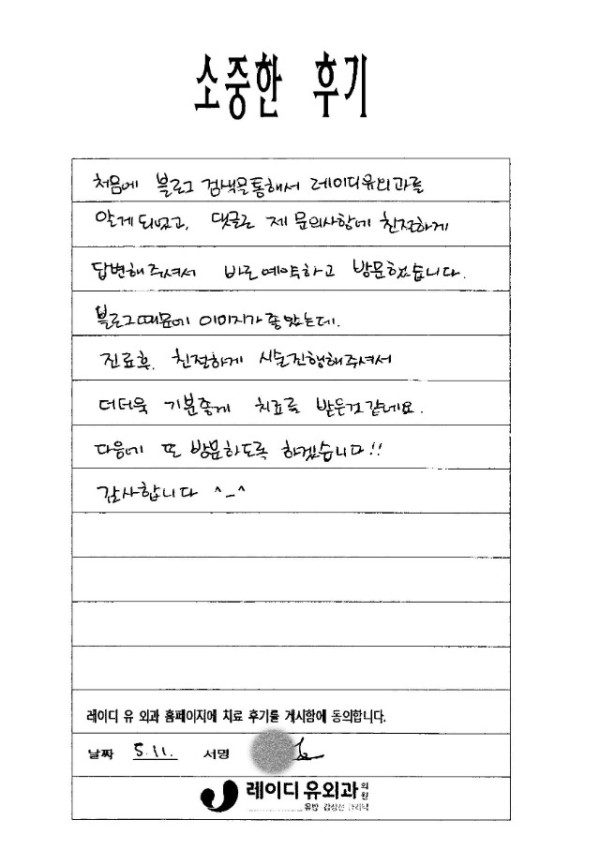 소중한 후기
처음에 블로그 검색을통해서 레이디유외과를
알게되었고, 댓글로 제 문의사항에 친절하게
답변해주셔서 바로예약하고 방문했습니다.
블로그때문에 이미지가좋았는데.
진료후. 친절하게 시술진행해주셔서
더더욱 기분좋게 치료를 받은것같네요.
다음에 또 방문하도록 하겠습니다!!
감사합니다 ^_^
레이디 유 외과 홈페이지에 치료 후기를 게시함에 동의합니다.
날짜 5.11. 서명
레이디유외과의원
유방 갑상선